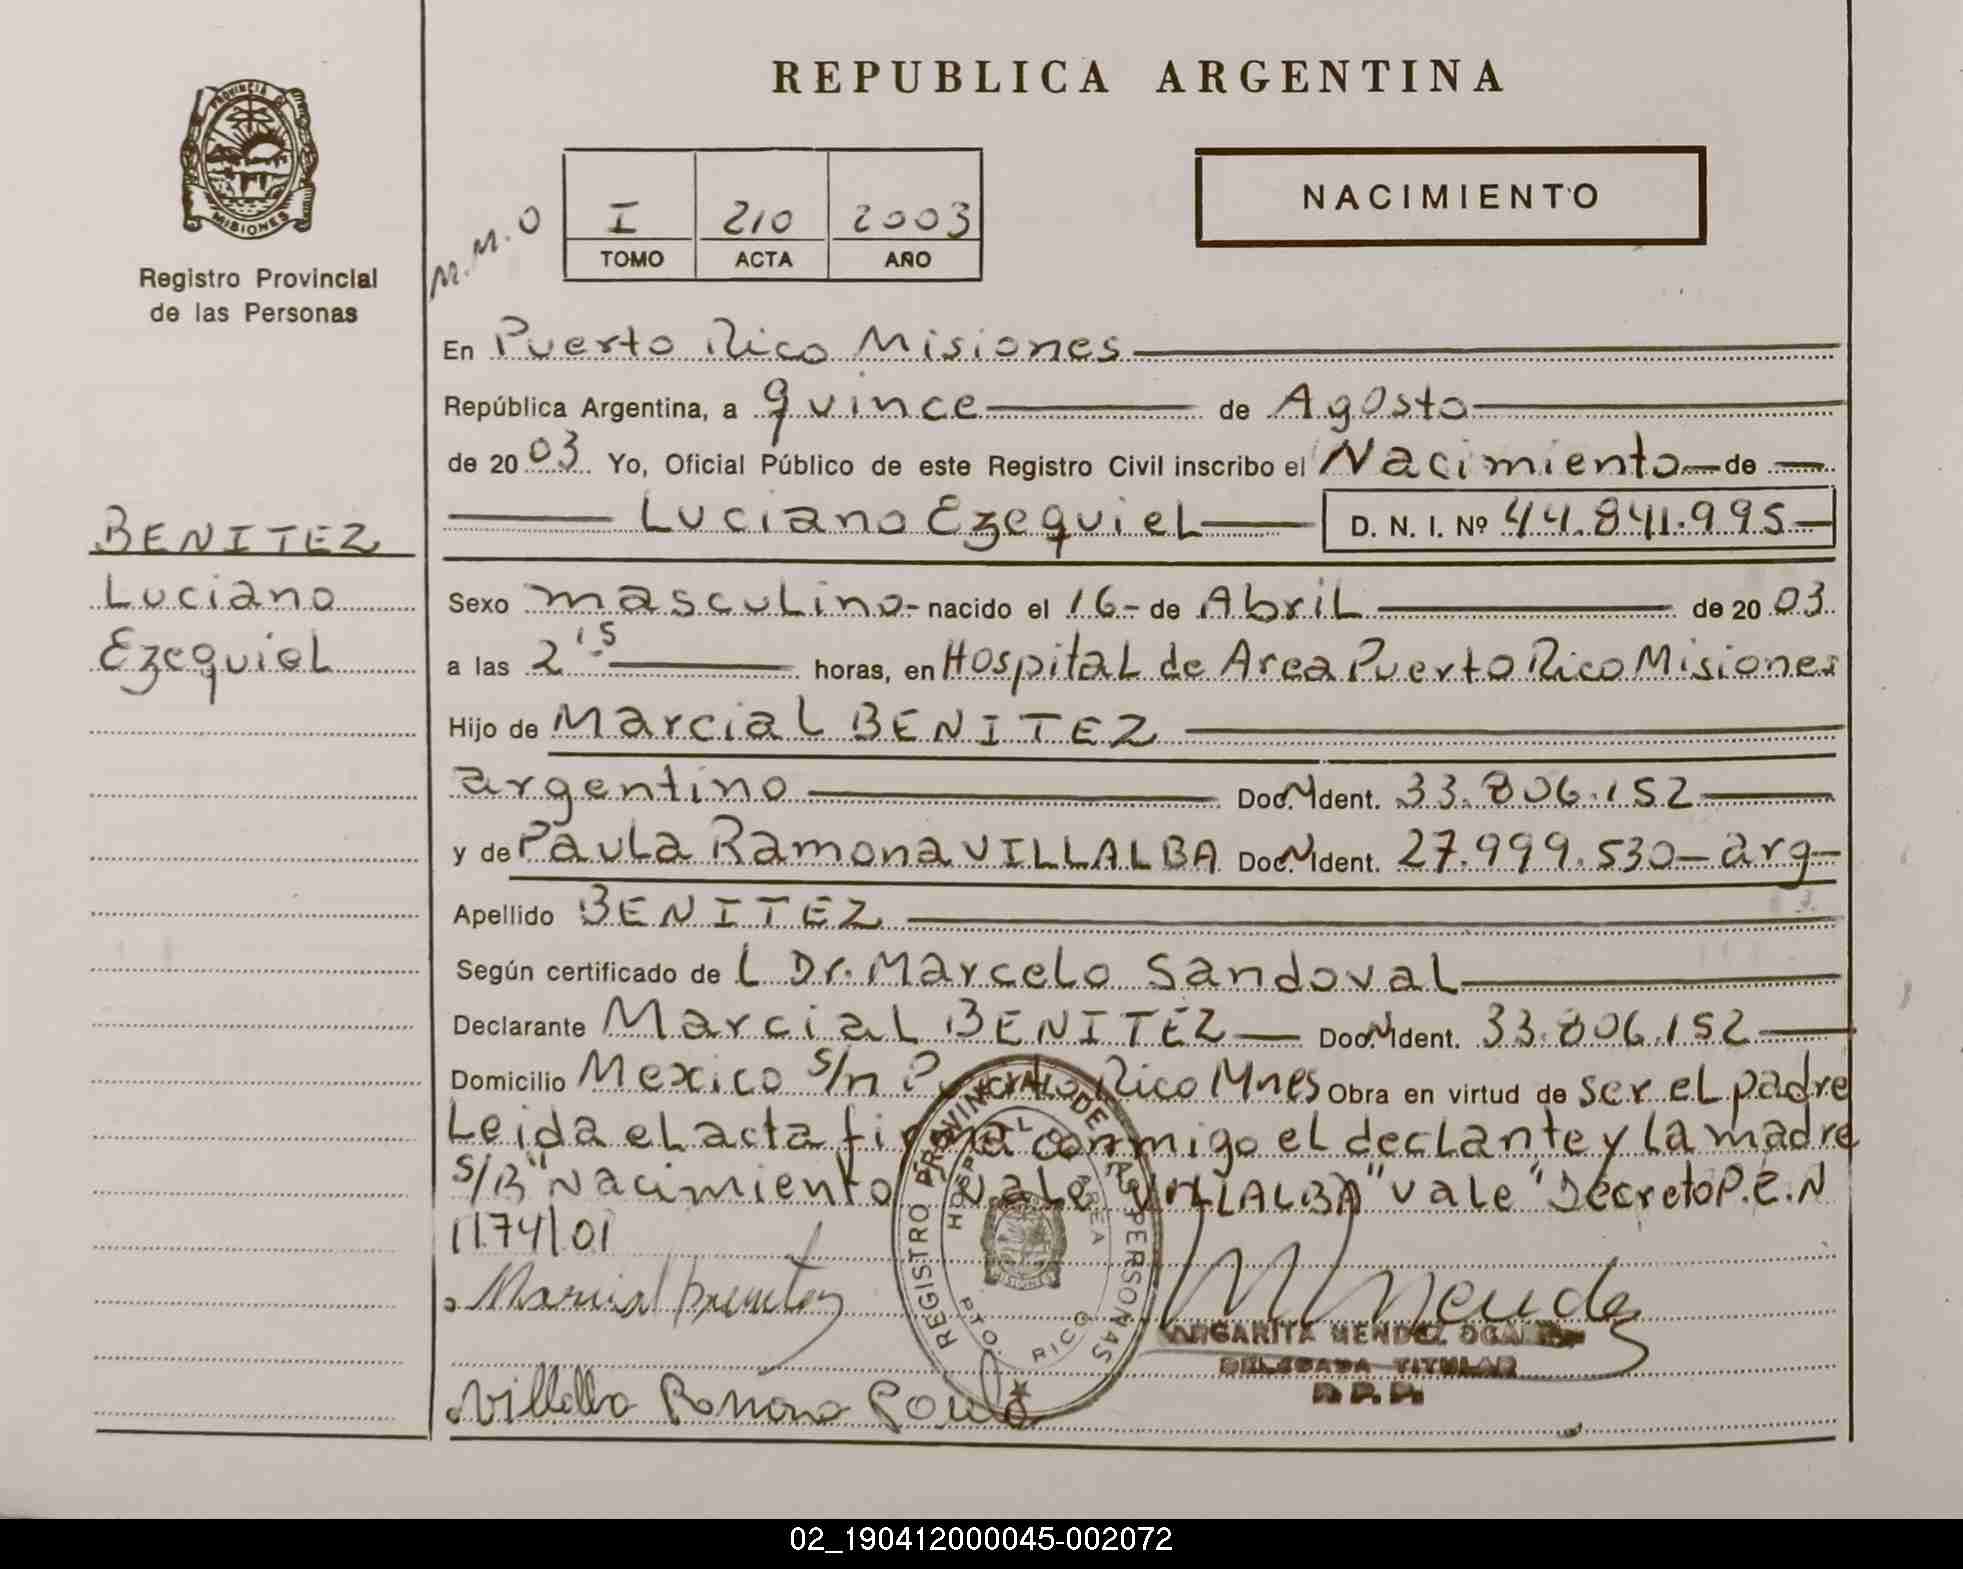 REPUBLICA ARGENTINA
PROVINCIA DE
MISIONES
Registro Provincial
de las Personas
M.M.O
I 210 2003
TOMO ACTA AÑO
NACIMIENTO
En Puerto Rico Misiones
República Argentina, a quince de Agosto
de 2003 Yo, Oficial Público de este Registro Civil inscribo el Nacimiento de
Luciano Ezequiel D. N. I. Nº 44.841.995
BENITEZ
Luciano
Ezequiel
Sexo masculino nacido el 16 de Abril de 2003
a las 2'15 horas, en Hospital de Area Puerto Rico Misiones
Hijo de Marcial BENITEZ
argentino Doc. N Ident. 33.806.152
y de Paula Ramona VILLALBA Doc. N Ident. 27.999.530 - arg
Apellido BENITEZ
Según certificado de L Dr. Marcelo Sandoval
Declarante Marcial BENITEZ Doc. N Ident. 33.806.152
Domicilio Mexico S/n Puerto Rico Mnes Obra en virtud de ser el padre
Leida el acta firma conmigo el declante y la madre
S/B "Nacimiento" vale "VILLALBA" vale "Decreto P.E.N
1174/01
Marcial Benitez
Villalba Ramona Paula
REGISTRO PROVINCIAL DE LAS PERSONAS
HOSPITAL DE AREA
PTO. RICO
M Mendez
MARGARITA MENDEZ
DELEGADA TITULAR
R.P.P.
02_190412000045-002072